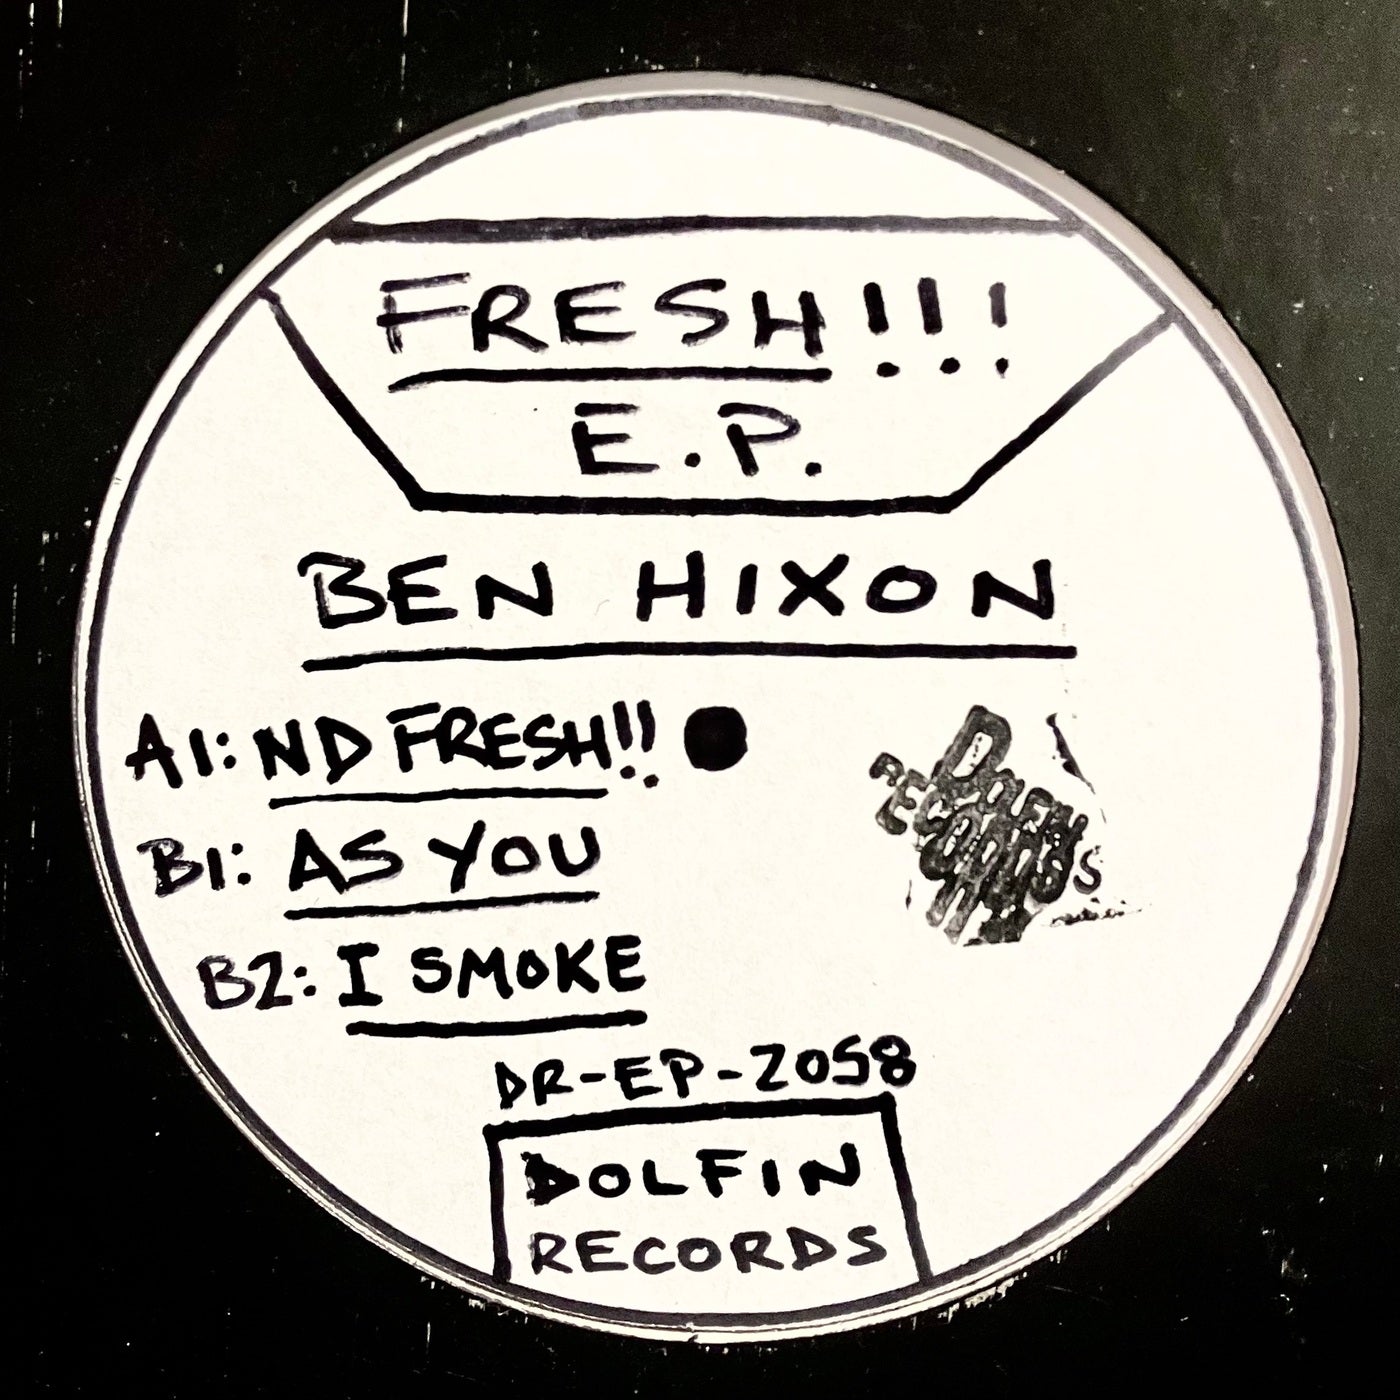 FRESH!!!
E.P.
BEN HIXON
A1: ND FRESH!!
B1: AS YOU
B2: I SMOKE
D
DOLFIN
RECORDS
DR-EP-2058
DOLFIN
RECORDS